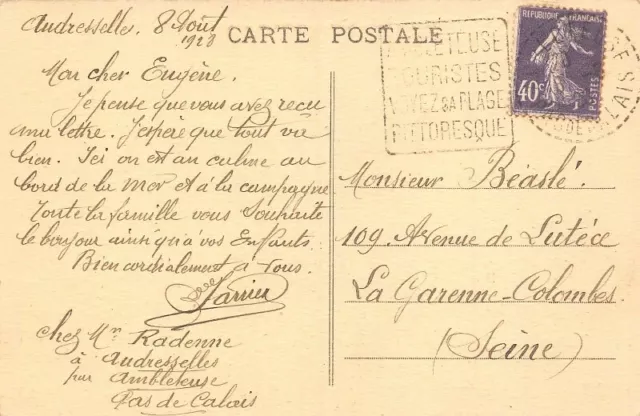 Audresselles. 8 Août
1928
CARTE POSTALE
AMBLETEUSE
TOURISTES
VOYEZ SA PLAGE
PITTORESQUE
REPUBLIQUE FRANÇAISE
40c
POSTES
Mon cher Eugène.
Je pense que vous avez reçu
ma lettre. J'espère que tout va
bien. Ici on est au calme au
bord de la Mer et à la campagne
Toute la famille vous souhaite
le bonjour ainsi qu'à vos Enfants.
Bien cordialement à vous.
chez Mr Radenne
à Audresselles
par Ambleteuse
Pas de Calais
Monsieur Béaslé.
109. Avenue de Lutéce
La Garenne-Colombes.
(Seine)